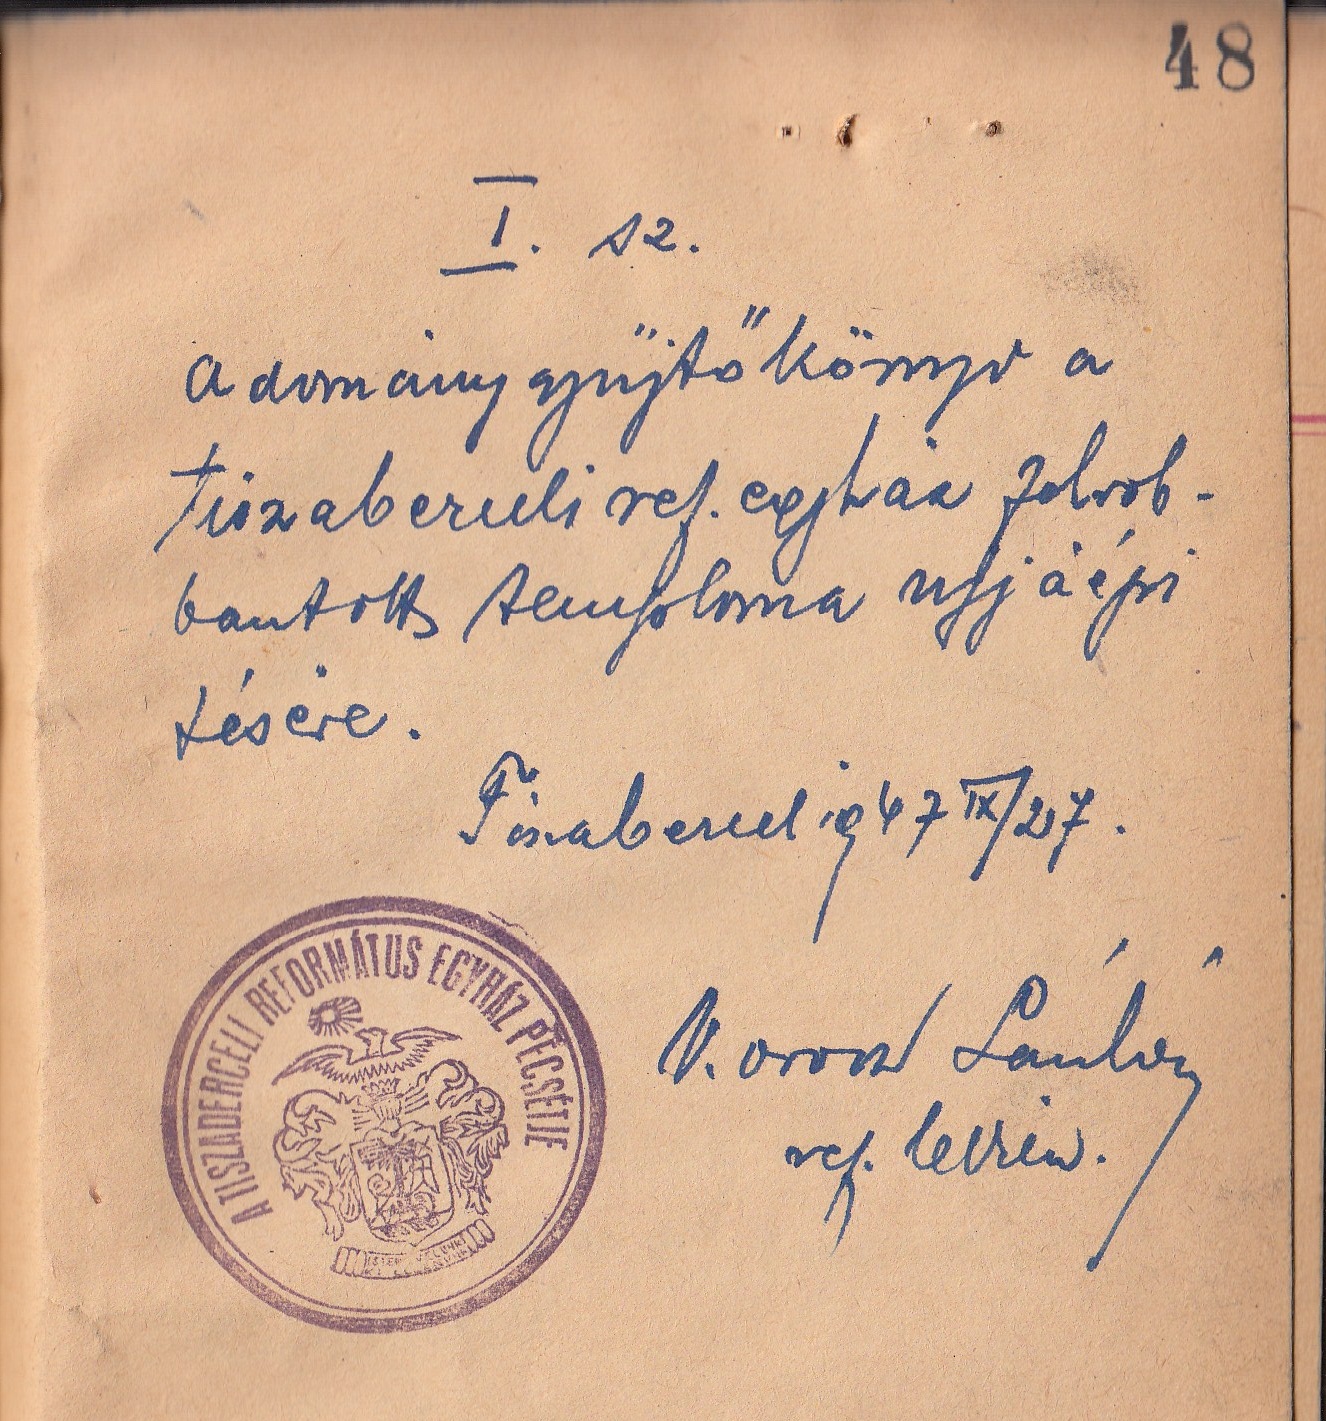 48
I. sz.
Adománygyüjtőkönyv a
Tiszaberceli ref. egyház felrob-
bantott temploma ujjáépi
tésére.
Tiszabercel 1947 IX/27.
V. Orosz
ref. lelkész.
A TISZABERCELI REFORMÁTUS EGYHÁZ PECSÉTJE